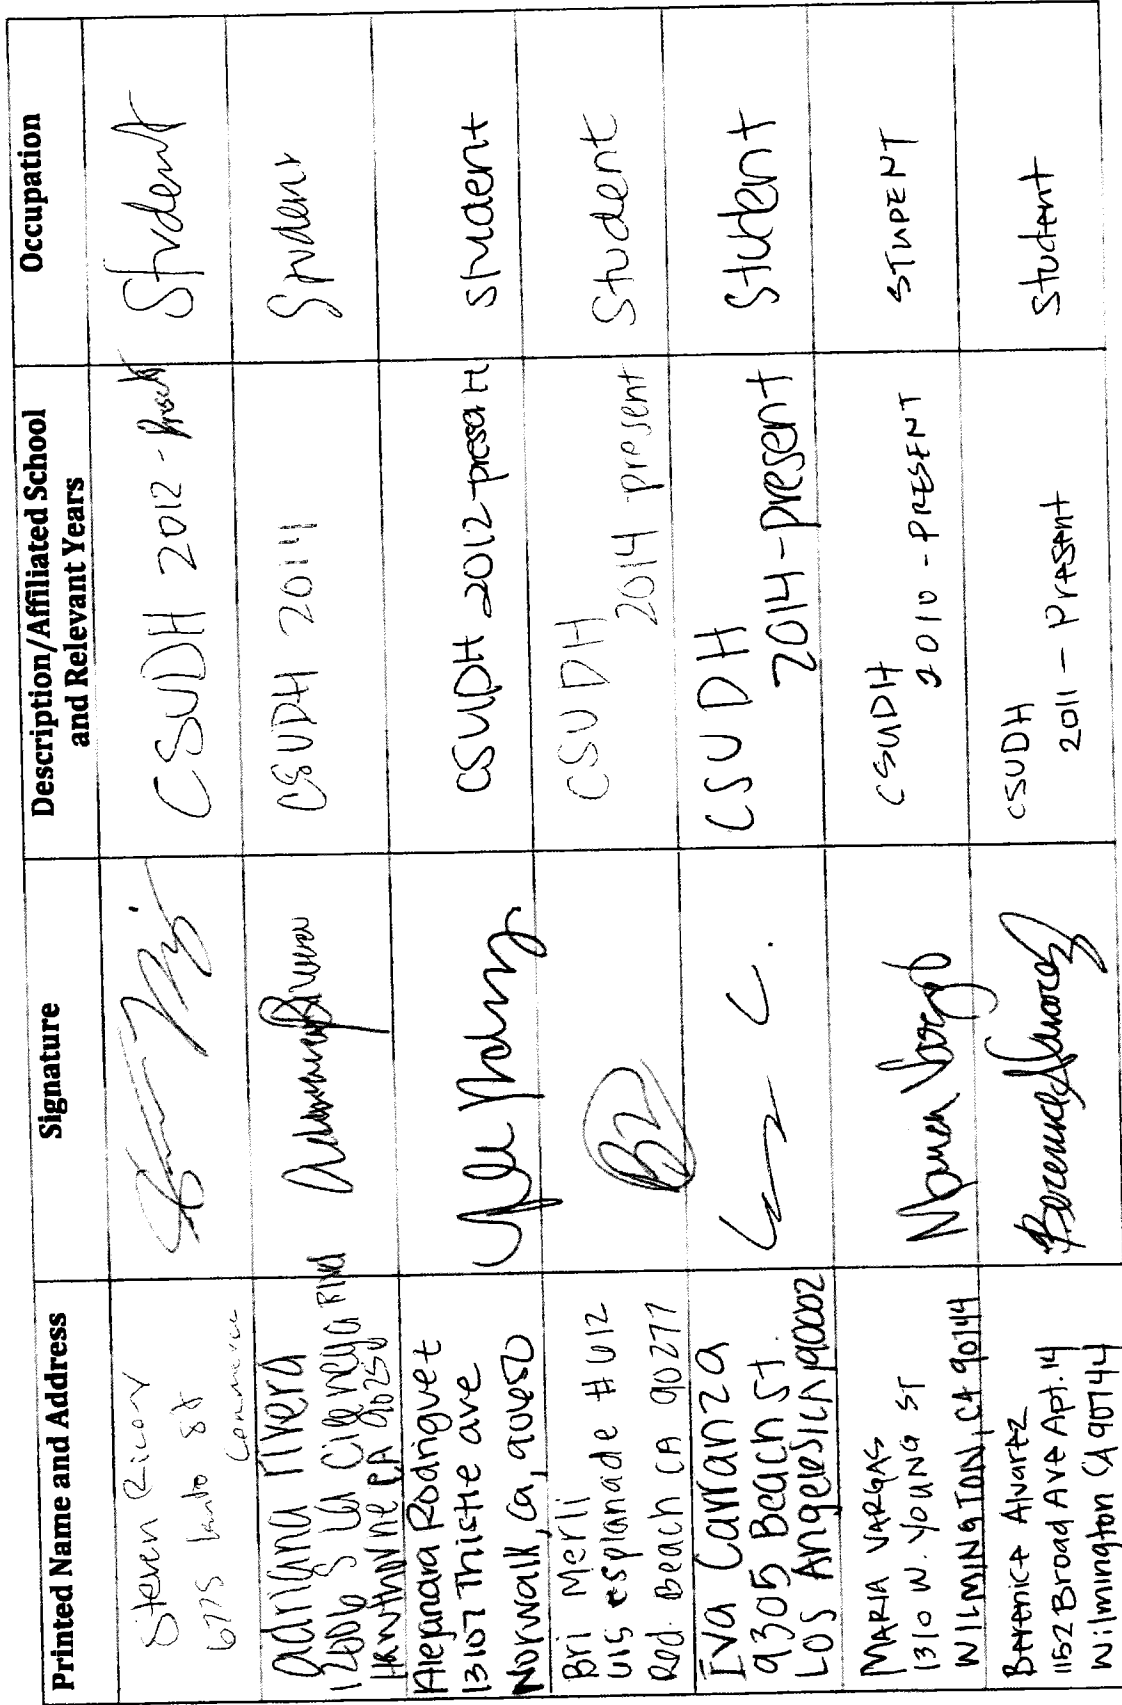 Printed Name and Address
Signature
Description/Affiliated School
and Relevant Years
Occupation
Steven Ricoy
6775 St
Commerce
CSUDH 2012 - Present
Student
adriana rivera
12606 S La Cienega Blvd
Hawthorne CA 90250
CSUDH 2014
Student
Alejandra Rodriguez
13107 Thistle ave
Norwalk, Ca, 90650
CSUDH 2012-present
student
Bri Merli
esplanade
Red. Beach CA 90277
CSUDH
2014-present
Student
Eva Carranza
9305 Beach St.
Los Angeles, CA 90002
CSUDH
2014-present
Student
MARIA VARGAS
1310 W. YOUNG ST
WILMINGTON, CA 90744
Maria Vargas
CSUDH
2010 - PRESENT
STUDENT
Berenice Alvarez
1152 Broad Ave Apt. 14
Wilmington CA 90744
Berenice Alvarez
CSUDH
2011 - Present
Student